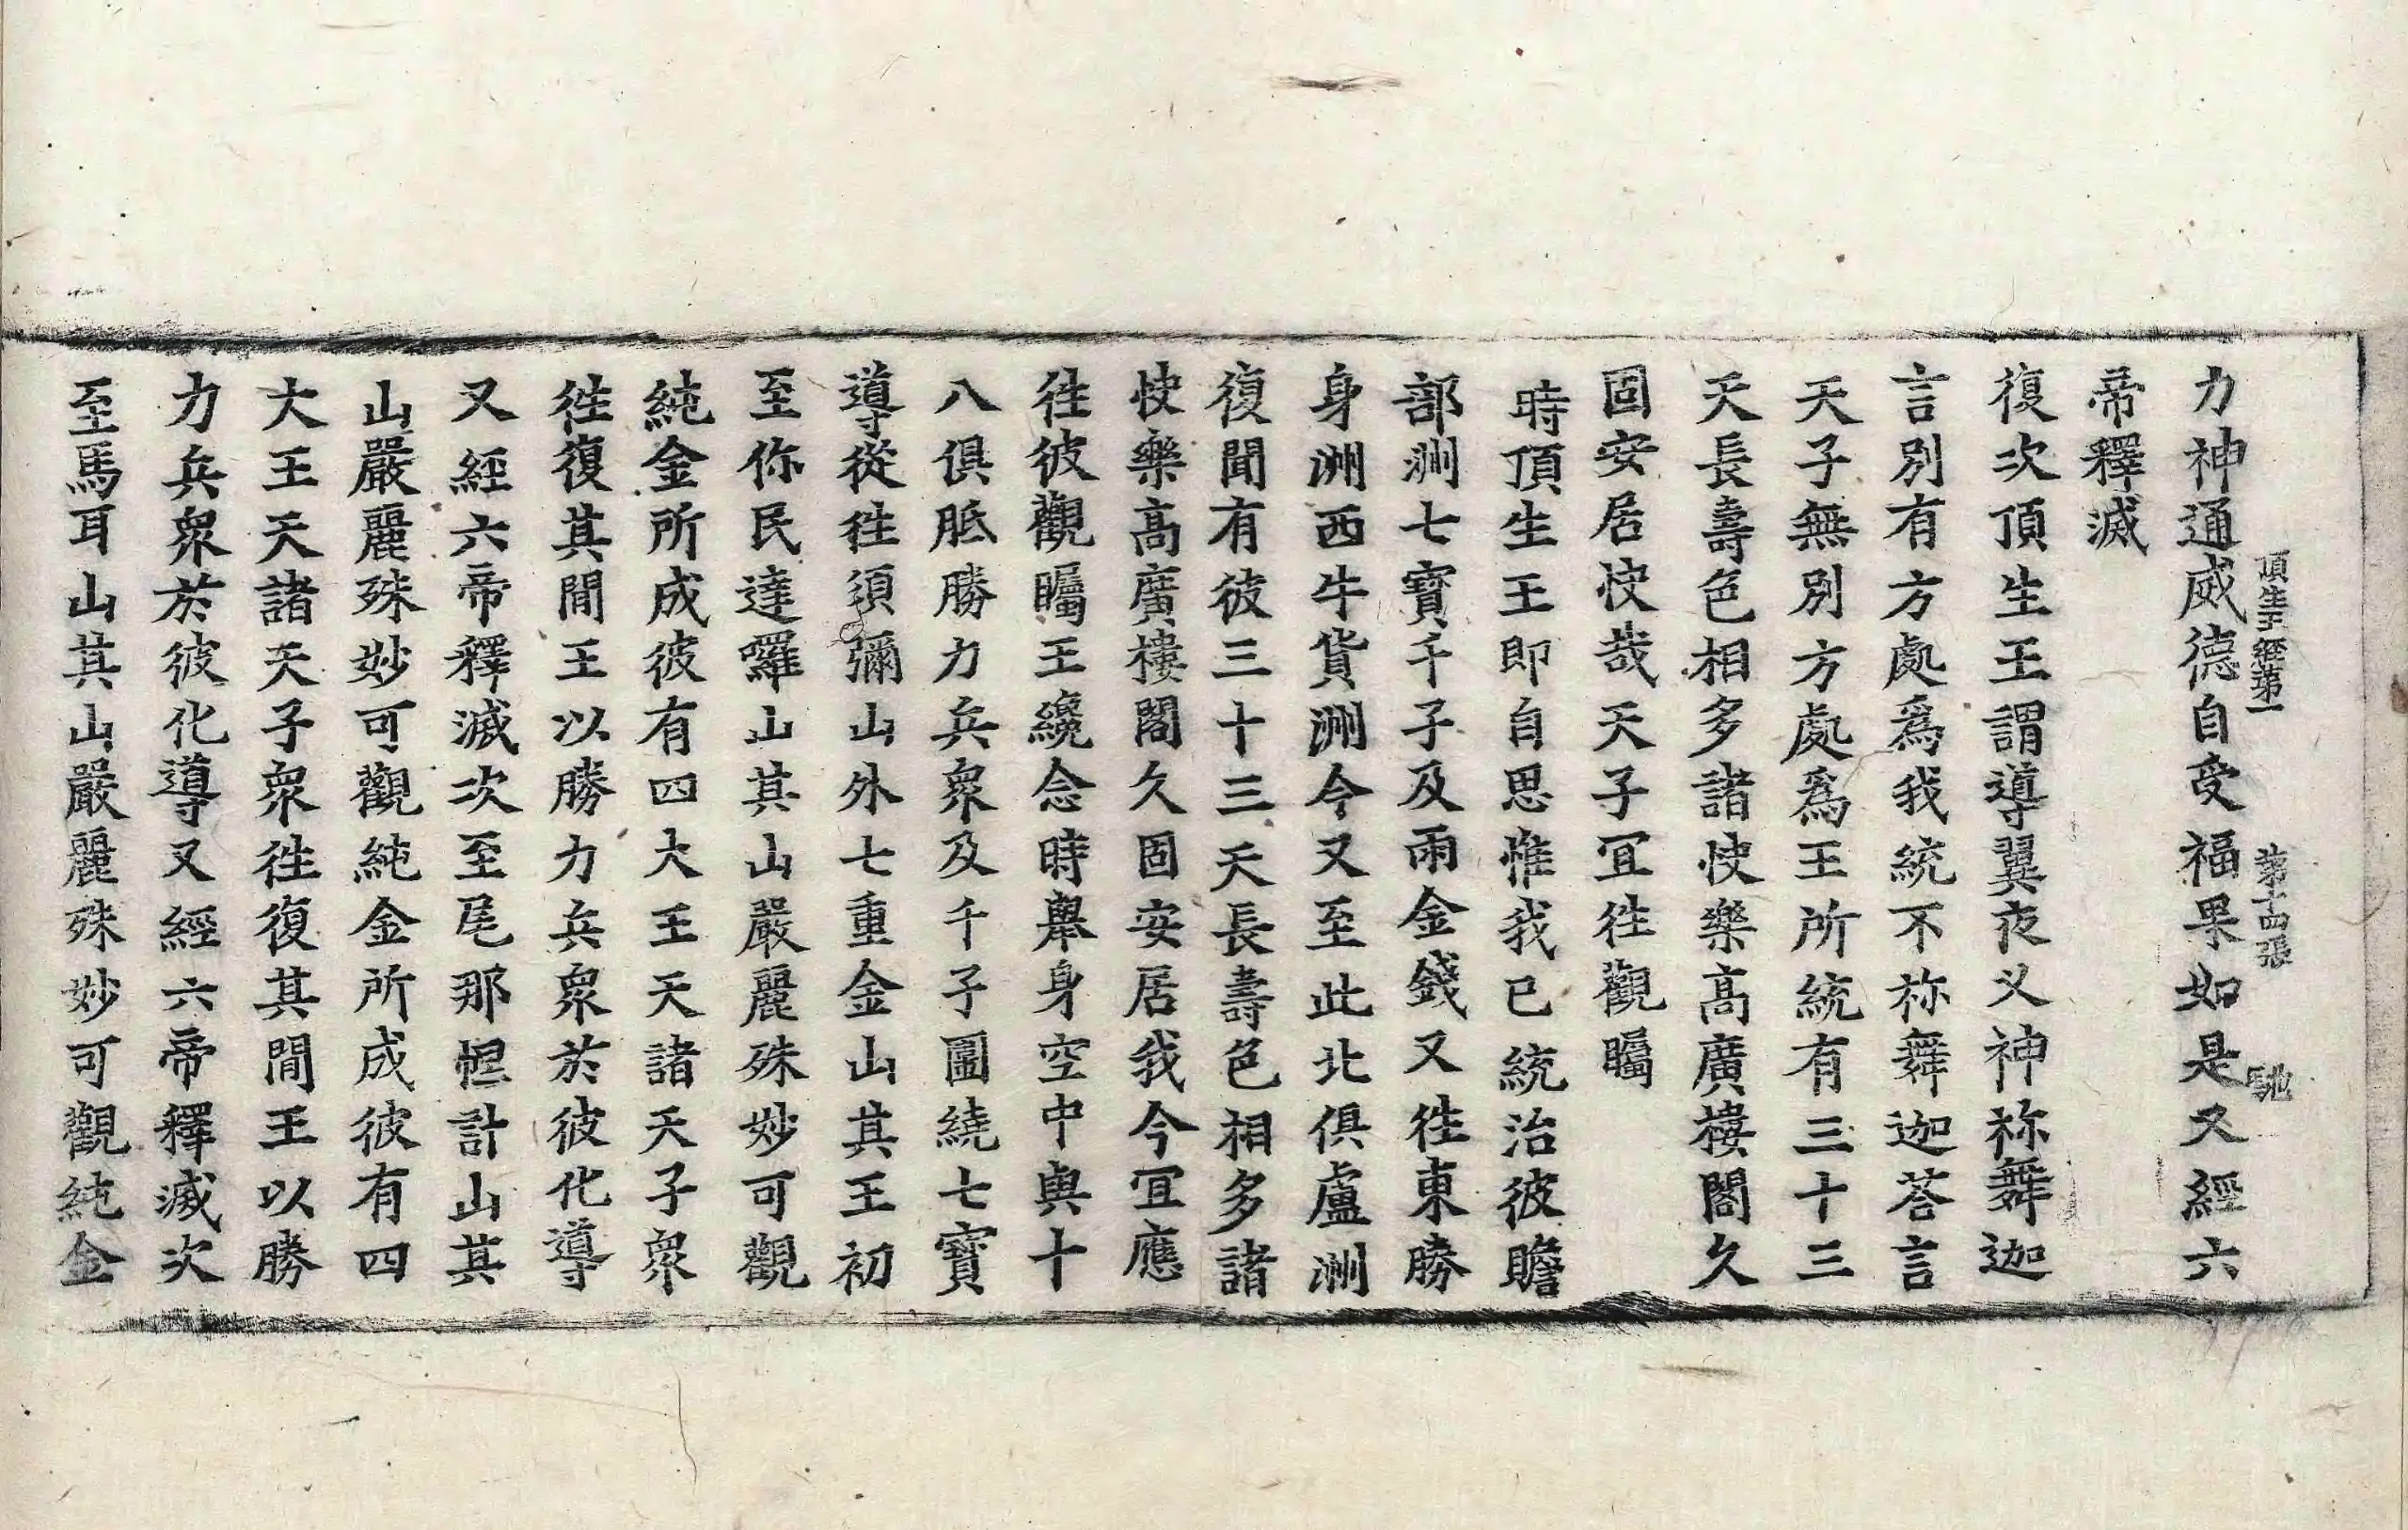 頂生王經第一 第十四張 馳
力神通威德自受福果如是又經六
帝釋滅
復次頂生王謂導翼夜叉神祢舞迦
言別有方處爲我統不祢舞迦荅言
天子無別方處爲王所統有三十三
天長壽色相多諸快樂高廣樓閣久
固安居快㢤天子冝徃觀矚
時頂生王即自思惟我已統治彼贍
部洲七寳千子及雨金錢又徃東勝
身洲西牛貨洲今又至此北俱盧洲
復聞有彼三十三天長壽色相多諸
快樂高廣樓閣久固安居我今冝應
徃彼觀矚王纔念時舉身空中與十
八俱胝勝力兵衆及千子圍繞七寳
導從徃須彌山外七重金山其王初
至你民達囉山其山嚴麗殊妙可觀
純金所成彼有四大王天諸天子衆
徃復其間王以勝力兵衆於彼化導
又經六帝釋滅次至尾那怛計山其
山嚴麗殊妙可觀純金所成彼有四
大王天諸天子衆徃復其間王以勝
力兵衆於彼化導又經六帝釋滅次
至馬耳山其山嚴麗殊妙可觀純金